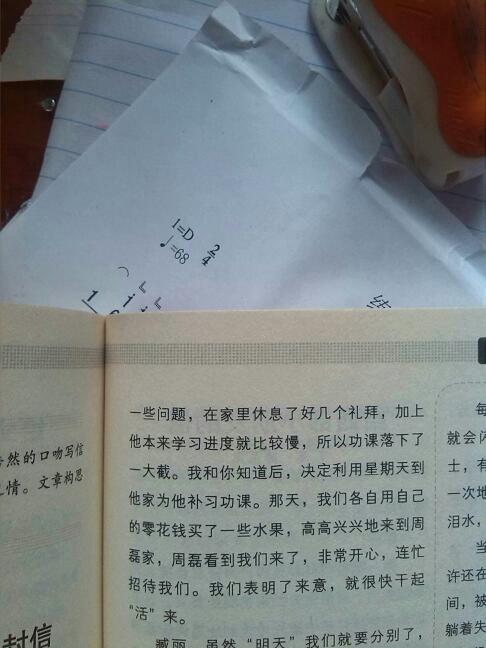 1=D 2/4
♩=68
1
练
然的口吻写信
情。文章构思
封信
一些问题，在家里休息了好几个礼拜，加上
他本来学习进度就比较慢，所以功课落下了
一大截。我和你知道后，决定利用星期天到
他家为他补习功课。那天，我们各自用自己
的零花钱买了一些水果，高高兴兴地来到周
磊家，周磊看到我们来了，非常开心，连忙
招待我们。我们表明了来意，就很快干起
“活”来。
臧丽，虽然“明天”我们就要分别了，
每
就会闪
士，有
一次地
泪水，
当
许还在
间，被
躺着失